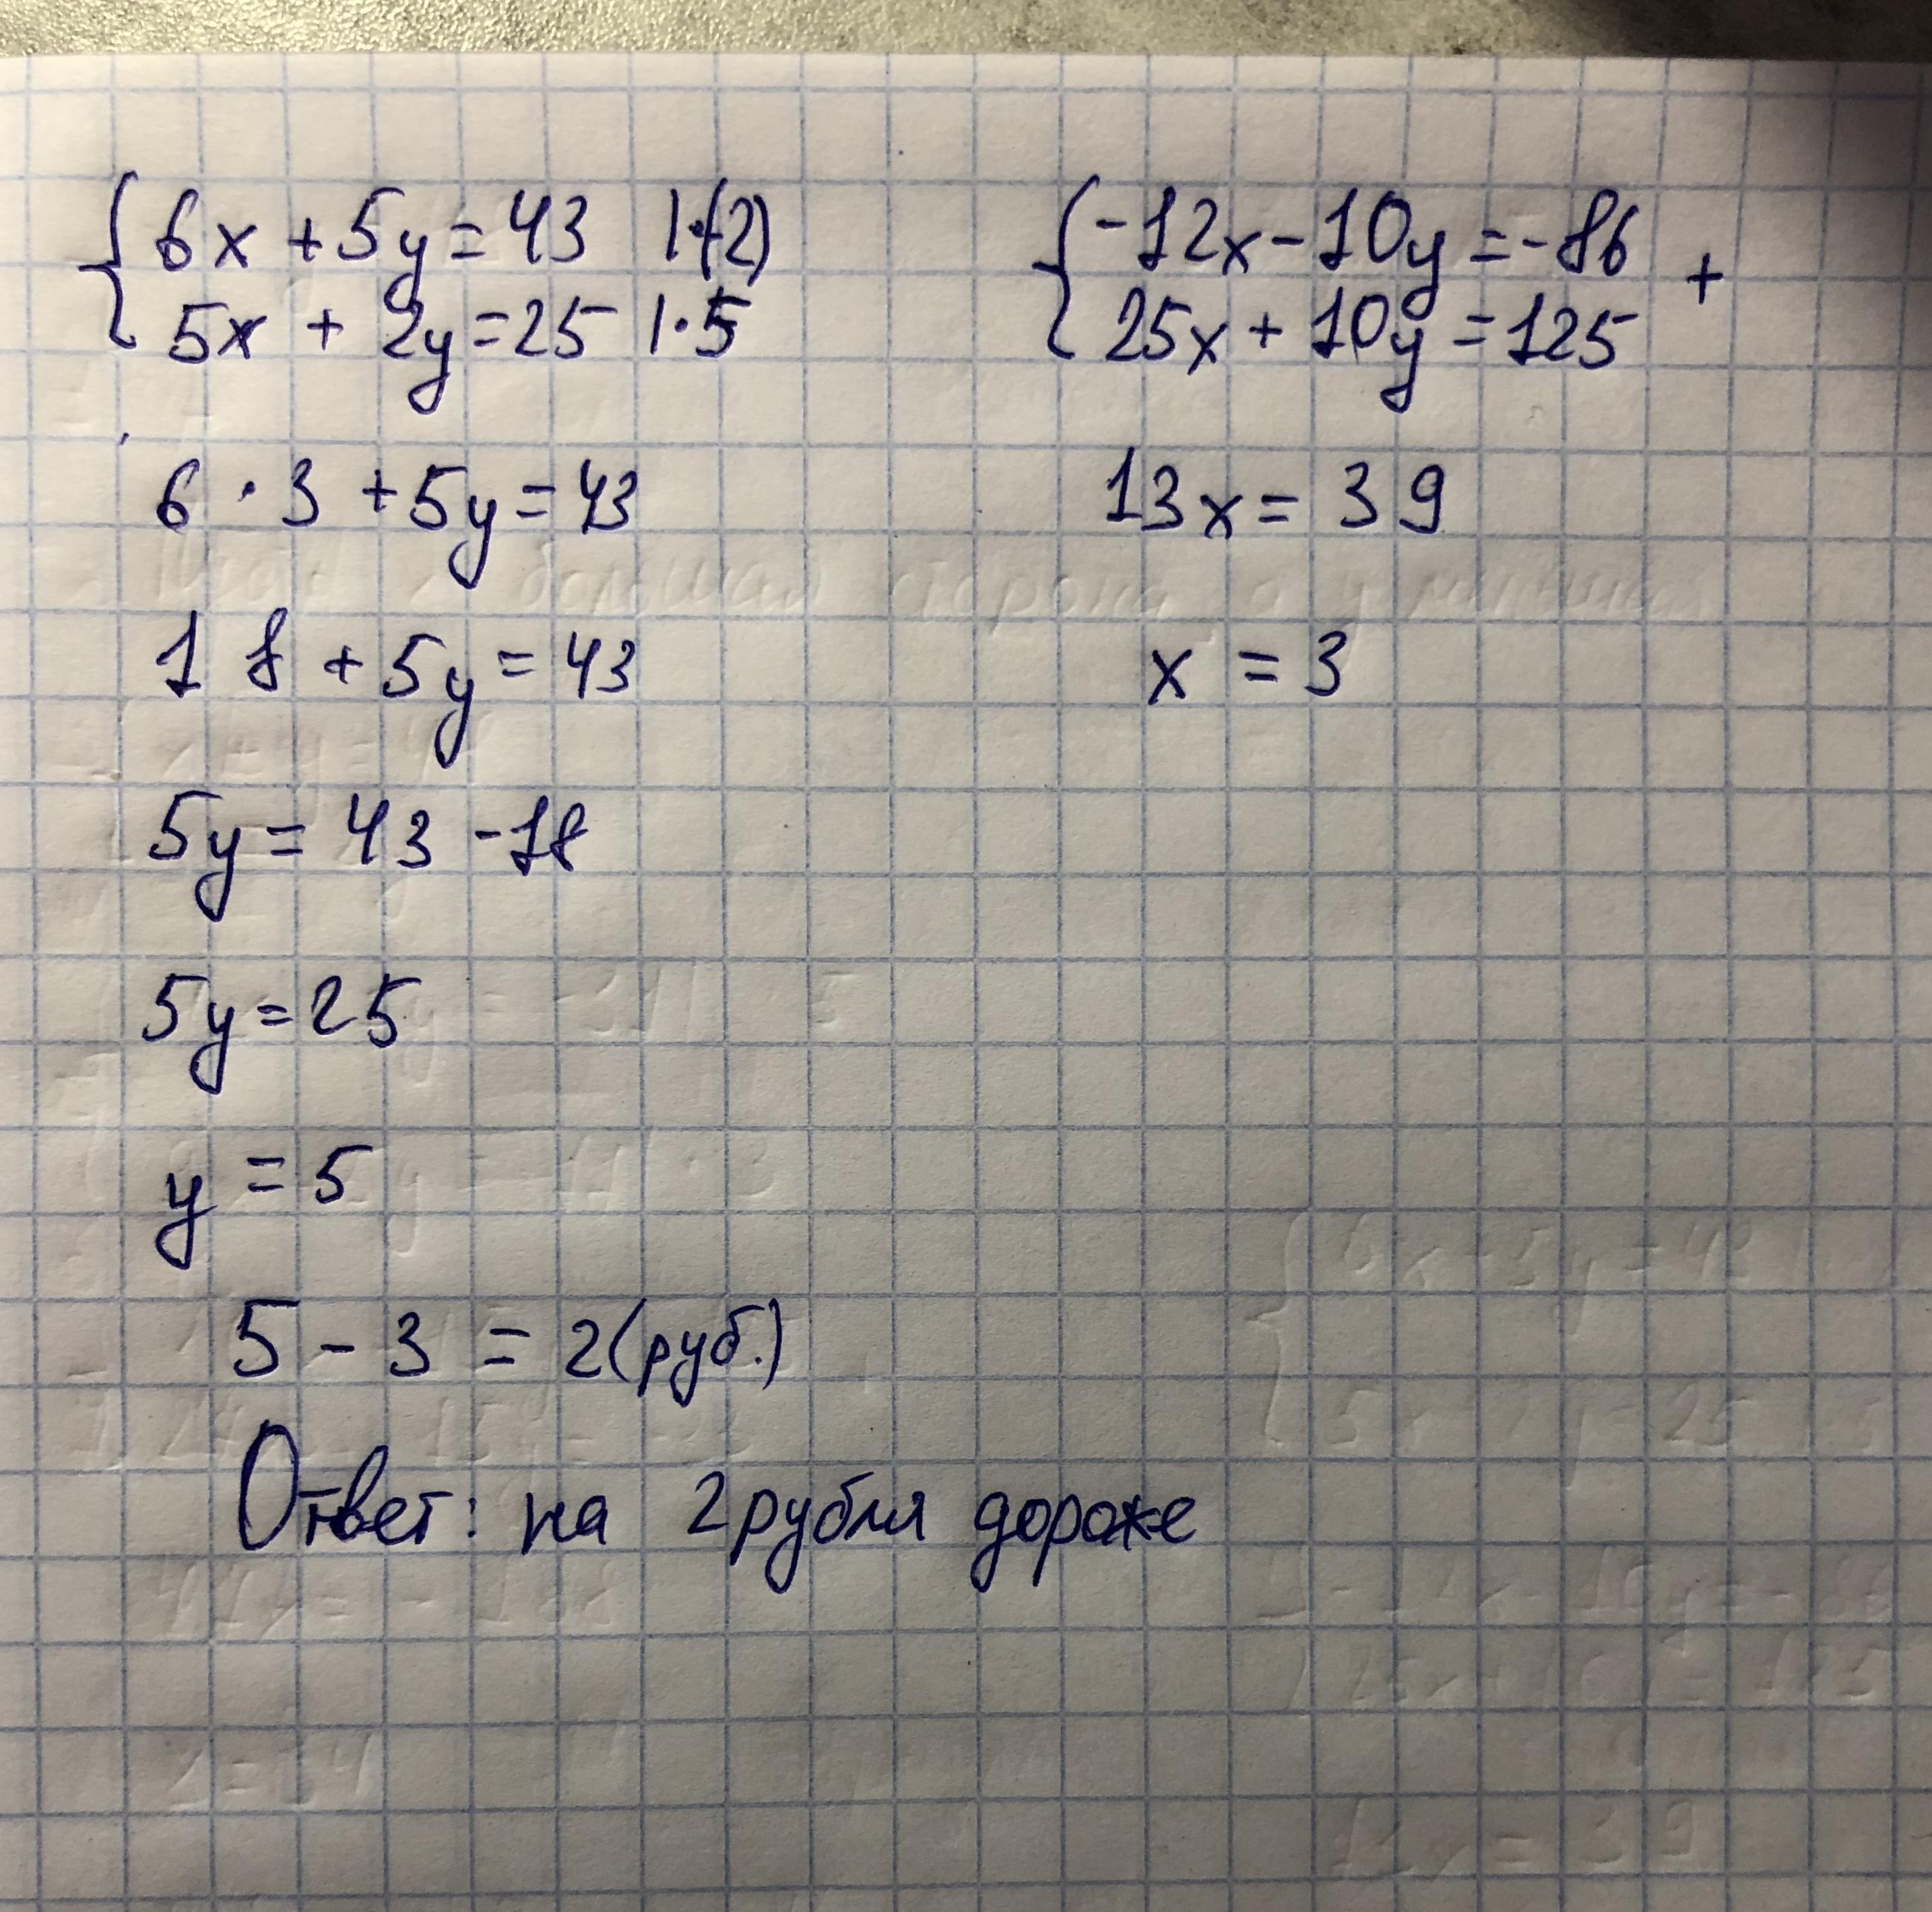 6x + 5y = 43 |·(-2)
5x + 2y = 25 |·5
-12x - 10y = -86 +
25x + 10y = 125
13x = 39
x = 3
6 · 3 + 5y = 43
18 + 5y = 43
5y = 43 - 18
5y = 25
y = 5
5 - 3 = 2 (руб.)
Ответ: на 2 рубля дороже